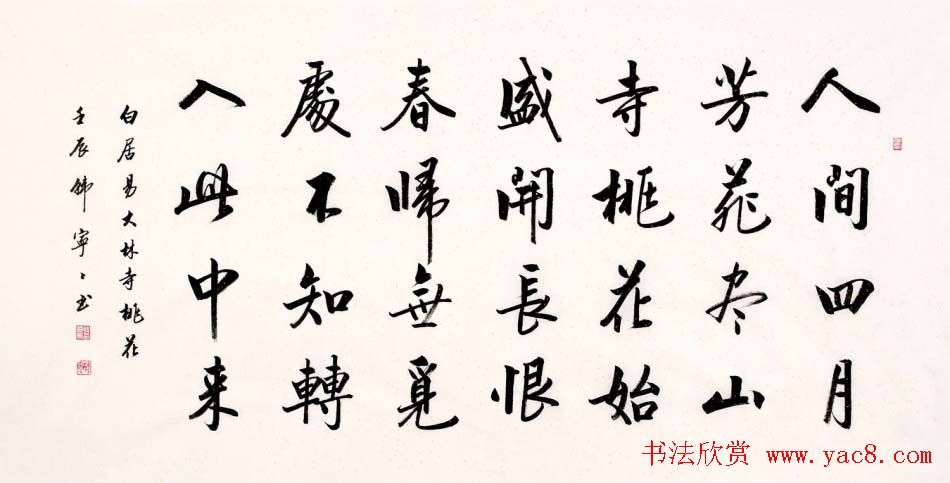 人間四月
芳菲尽山
寺桃花始
盛開長恨
春帰無覓
處不知轉
入此中来
白居易大林寺桃花
壬辰韩寧〻书
书法欣赏 www.yac8.com